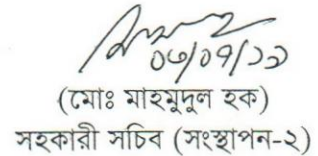 ০৩/০৭/১১
(মোঃ মাহমুদুল হক)
সহকারী সচিব (সংস্থাপন-২)